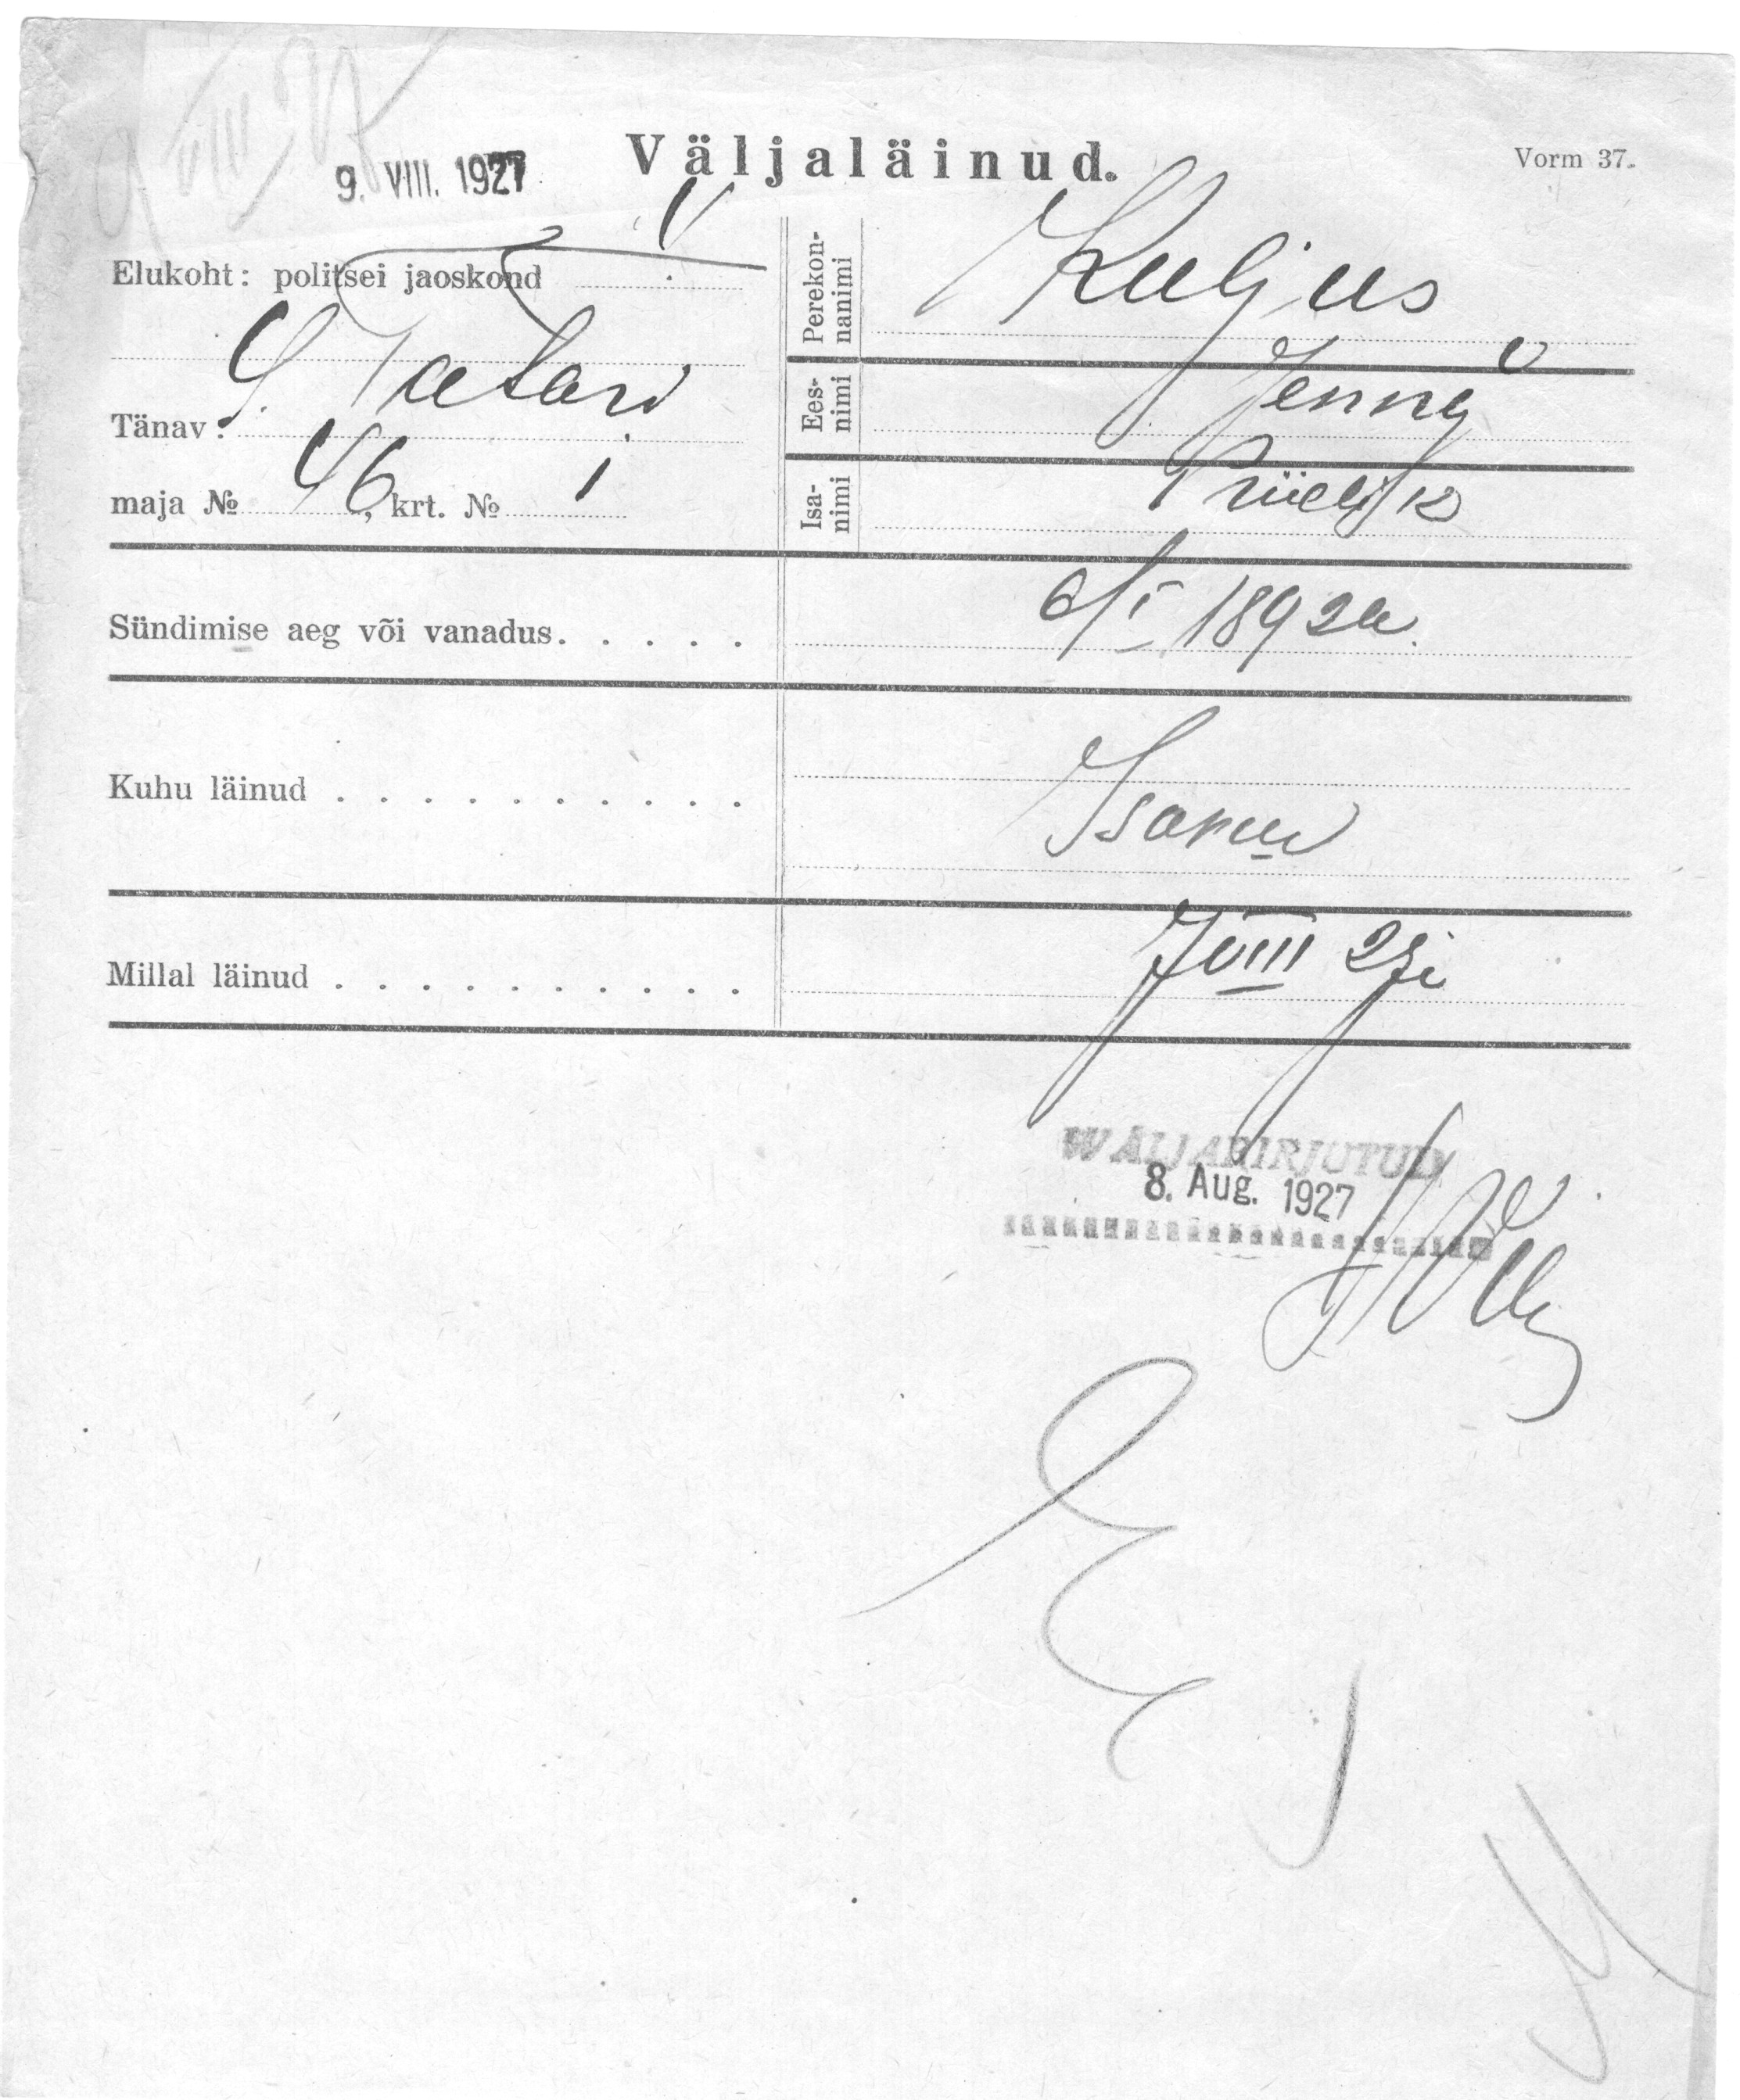 9 VIII 27
9. VIII. 1927
Väljaläinud.
Vorm 37.
Elukoht: politsei jaoskond
Tatari
Tänav:
maja № 46, krt. № 1
Perekon-
nanimi
Kuljus
Ees-
nimi
Jenny
Isa-
nimi
Sündimise aeg või vanadus. . . . . 6/I 1892a.
Kuhu läinud . . . . . . . . . .
Millal läinud . . . . . . . . . . 7 VIII 27
WÄLJAKIRJUTUD
8. Aug. 1927